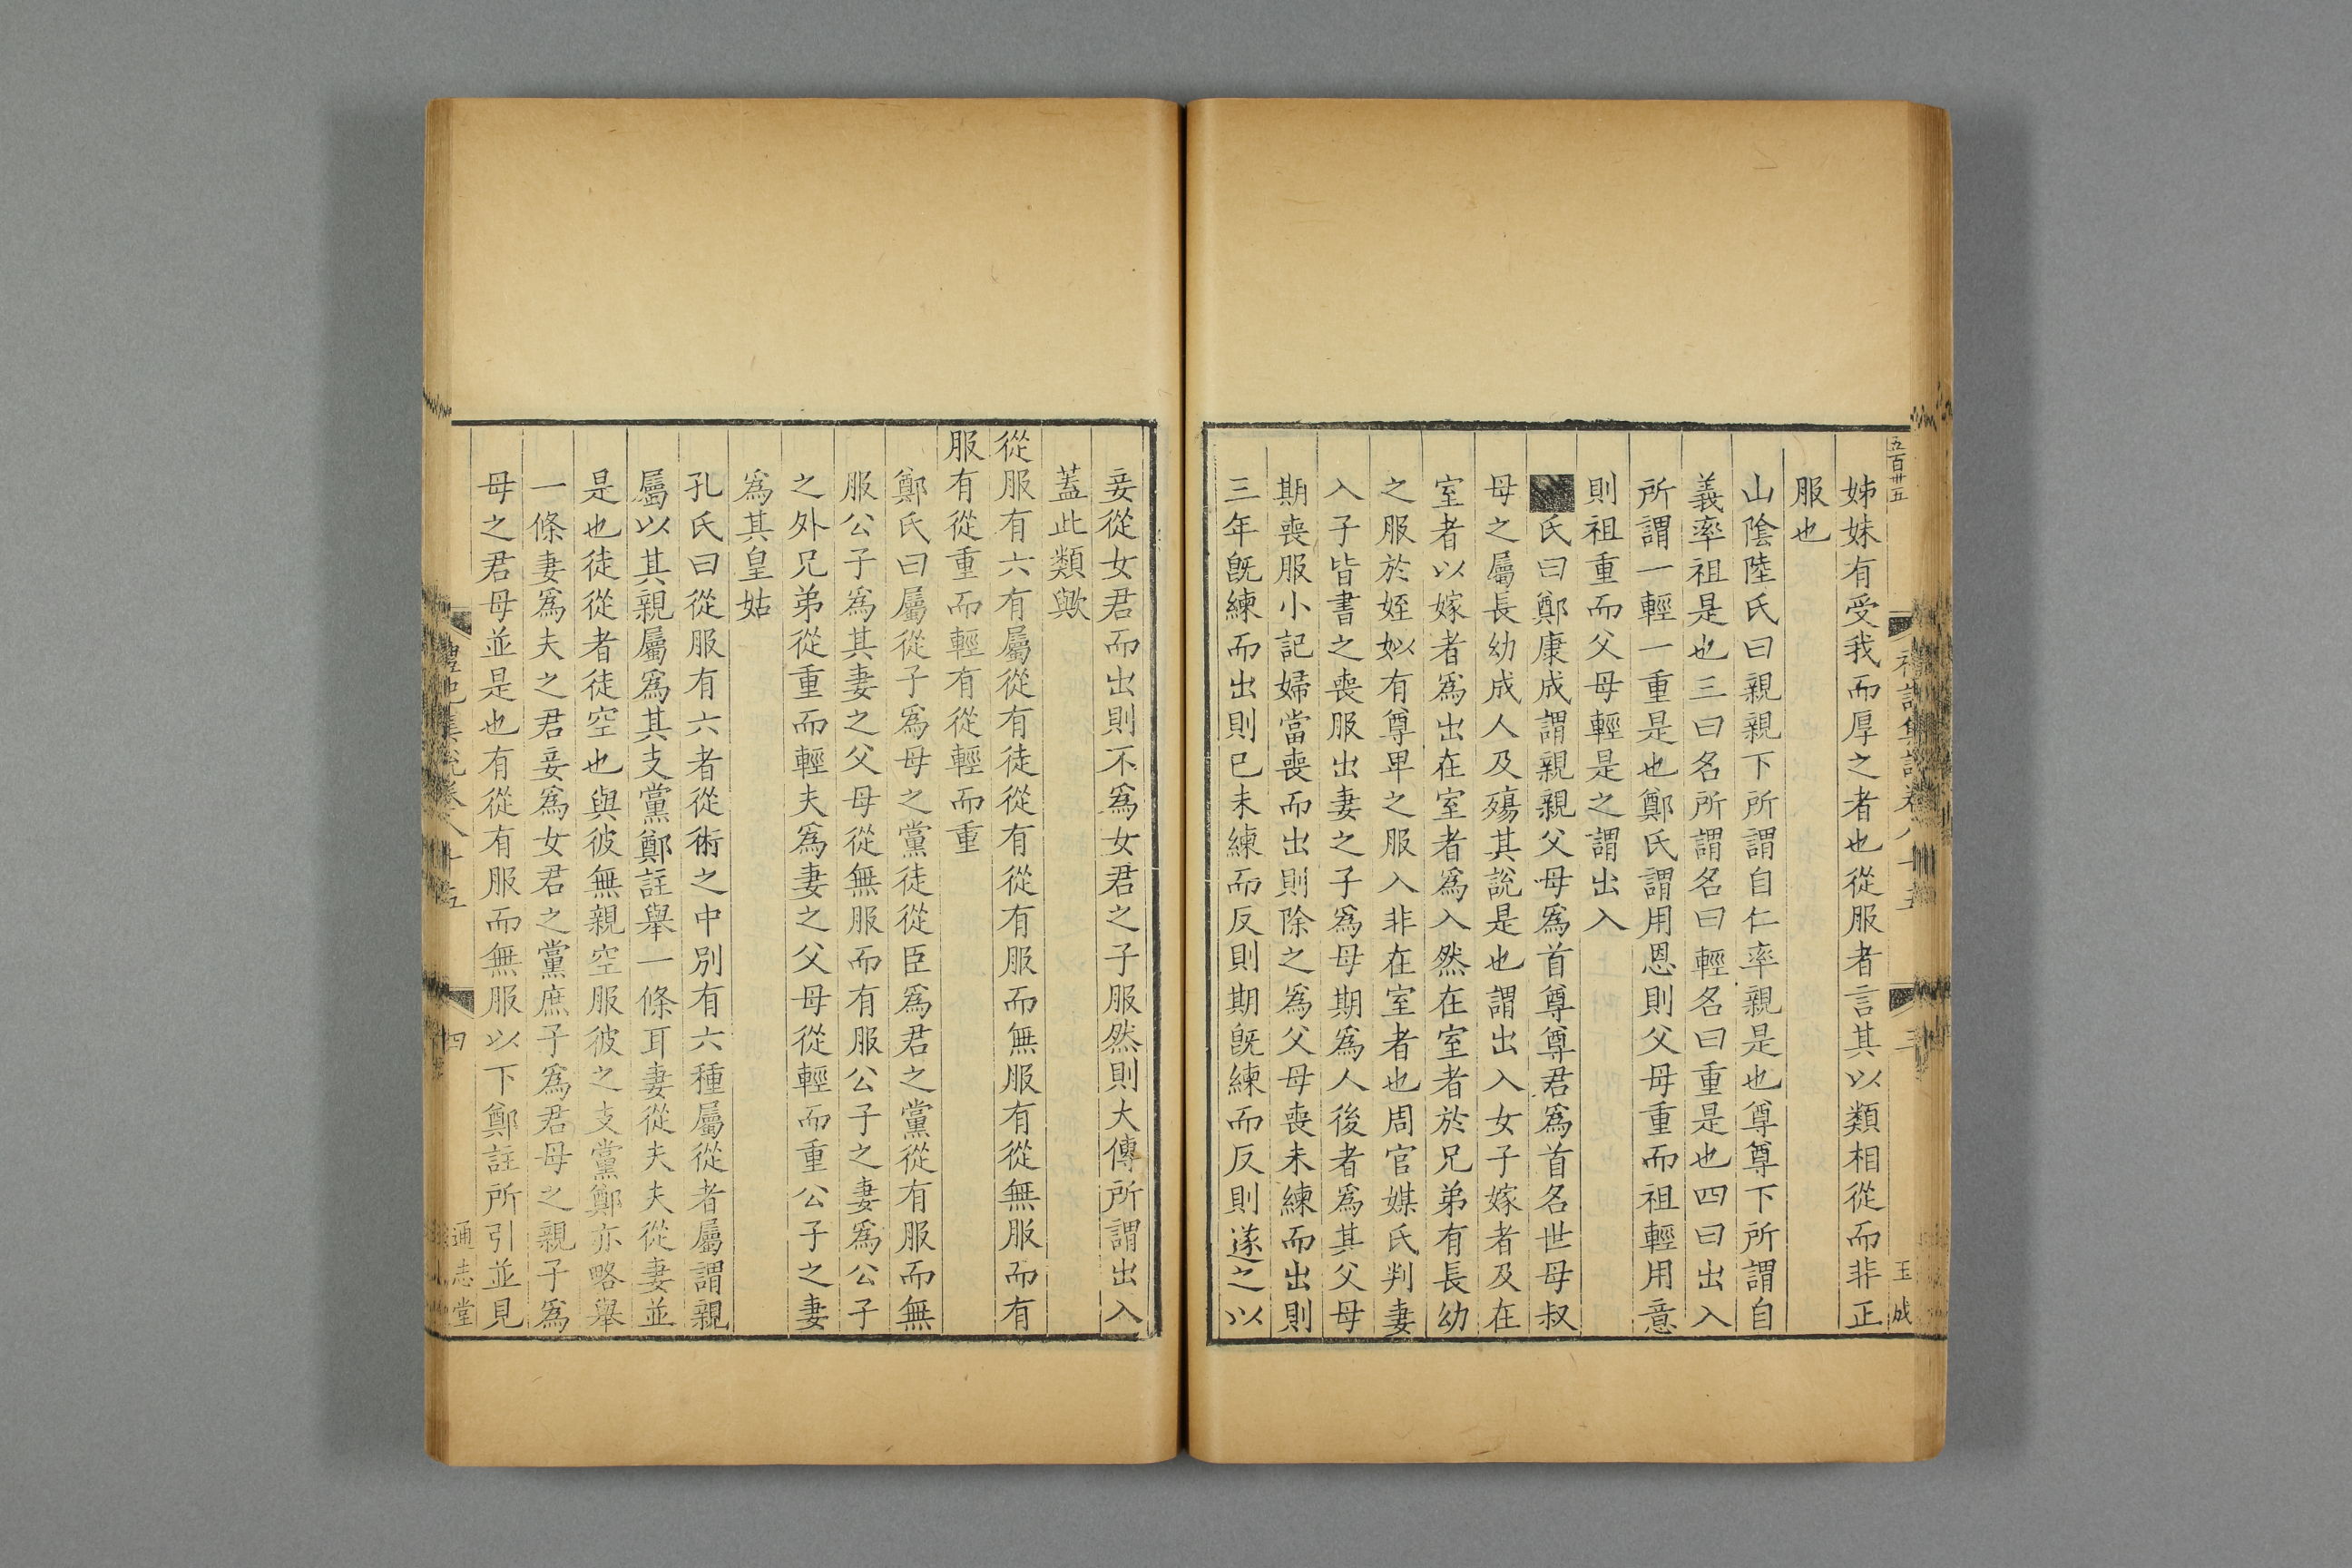 五百卅五
玉成
姊妹有受我而厚之者也從服者言其以類相從而非正
服也
山陰陸氏曰親親下所謂自仁率親是也尊尊下所謂自
義率祖是也三曰名所謂名曰輕名曰重是也四曰出入
所謂一輕一重是也鄭氏謂用恩則父母重而祖輕用意
則祖重而父母輕是之謂出入
氏曰鄭康成謂親親父母爲首尊尊君爲首名世母叔
母之屬長幼成人及殤其說是也謂出入女子嫁者及在
室者以嫁者爲出在室者爲入然在室者於兄弟有長幼
之服於姪姒有尊卑之服入非在室者也周官媒氏判妻
入子皆書之喪服出妻之子爲母期爲人後者爲其父母
期喪服小記婦當喪而出則除之爲父母喪未練而出則
三年旣練而出則已未練而反則期旣練而反則遂之以
妾從女君而出則不爲女君之子服然則大傳所謂出入
蓋此類歟
從服有六有屬從有徒從有從有服而無服有從無服而有
服有從重而輕有從輕而重
鄭氏曰屬從子爲母之黨徒從臣爲君之黨從有服而無
服公子爲其妻之父母從無服而有服公子之妻爲公子
之外兄弟從重而輕夫爲妻之父母從輕而重公子之妻
爲其皇姑
孔氏曰從服有六者從術之中別有六種屬從者屬謂親
屬以其親屬爲其支黨鄭註舉一條耳妻從夫夫從妻並
是也徒從者徒空也與彼無親空服彼之支黨鄭亦略舉
一條妻爲夫之君妾爲女君之黨庶子爲君母之親子爲
母之君母並是也有從有服而無服以下鄭註所引並見
四
通志堂